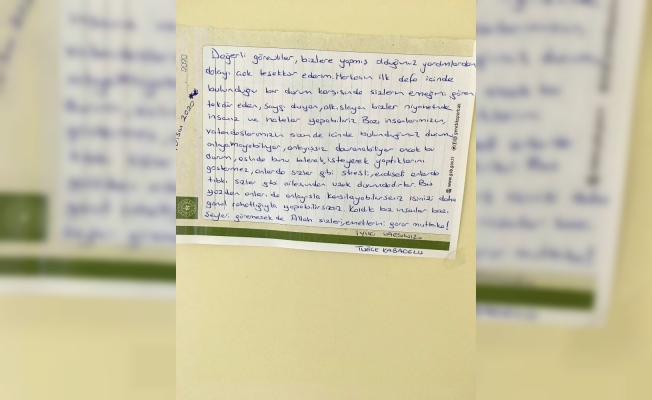 Değerli görevliler, bizlere yapmış olduğunuz yardımlardan
dolayı çok teşekkür ederim. Herkesin ilk defa içinde
bulunduğu bir durum karşısında sizlerin emeğini gören
takdir eden, saygı duyan, alkışlayan bizler niyahetinde
insanız ve hatalar yapabiliriz. Bazı insanlarımızın,
vatandaşlarımızın sizinde içinde bulunduğunuz durumu
anlayamayabiliyor, anlayışsız davranabiliyor ancak bu
durum, aslında bunu bilerek, isteyerek yaptıklarını
göstermez, onlarda sizler gibi stresli, endişeli onlarda
tıpkı sizler gibi ailesinden uzak durumdadırlar. Bu
yüzden onları da anlayışla karşılayabilirseniz işinizi daha
gönül rahatlığıyla yapabilirsiniz. Kaldıki bazı insanlar bazı
şeyleri görmesek de Allah sizleri, emeklerini görür mutlaka!
İYİKİ VARSINIZ..
TUĞÇE KABAOĞLU
2020